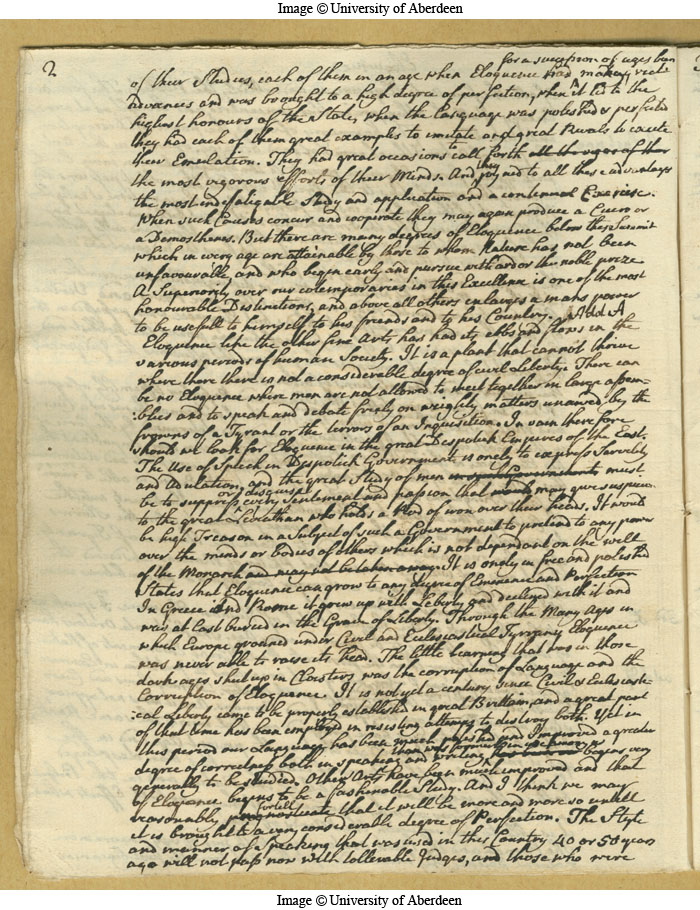 Image © University of Aberdeen
2
for a succession of ages been
of their Studies, each of them in an age when Eloquence had making great
advances and was brought to a high degree of perfection, when it led to the
highest honours of the State, when the language was polished & perfected
they had each of them great examples to imitate and great Rivals to excite
their Emulation. They had great occasions to call forth all the vigor of their
the most vigorous efforts of their Minds. And they joyned to all these advantages
the most indefatigable Study and application and a continual Exercise.
When such Causes concur and cooperate they may again produce a Cicero or
a Demosthenes. But there are many degrees of Eloquence below this Summit
which in every age are attainable by those to whom Nature has not been
unfavourable, and who begin early and pursue with ardor the noble prize
A Superiority over our cotemporaries in this Excellence is one of the most
honourable Distinctions, and above all others enlarges a mans power
to be usefull to himself to his friends and to his Country. Add A
Eloquence like the other fine Arts has had its ebbs and flows in the
various periods of human Society. It is a plant that cannot thrive
where there is not a considerable degree of civil Liberty. There can
be no Eloquence where men are not allowed to meet together in large assem-
:blies and to speak and debate freely on weighty matters unawed by the
frowns of a Tyrant or the terrors of an Inquisition. In vain therefore
should we look for Eloquence in the great Despotick Empires of the East.
The Use of Speech in Despotick Government is onely to express Servility
and Adulation, and the great Study of men in such Governments must
be to suppress or disguise every Sentiment and passion that would may give suspicion
to the great Leviathan who holds a Rod of iron over their heads. It would
be high Treason in a Subject of such a Government to pretend to any power
over the minds or bodies of others which is not dependant on the will
of the Monarch and may not be taken away. It is onely in free and polished
States that Eloquence can grow to any degree of Eminence and Perfection
In Greece and Rome it grew up with Liberty and declined with it and
was at last buried in the Grave of Liberty. Through the Many Ages in
which Europe groaned under Civil and Ecclesiastical Tyranny Eloquence
was never able to raise its head. The little learning that was in those
dark ages shut up in Cloisters was the corruption of Language and the
Corruption of Eloquence. It is not yet a century since Civil & Ecclesiasti-
:cal Liberty came to be properly established in great Brittain, and a great part
of that time has been employed in resisting attempts to destroy both. Yet in
this period our Language has been much polished and Improved a greater
degree of correctness both in speaking and writing than was formerly begins very
generally to be studied. Other Arts have been much improved and that
of Eloquence begins to be a fashionable Study. And I think we may
reasonably prognosticate foretell that it will be more and more so untill
it is brought to a very considerable degree of Perfection. The Style
and manner of speaking that was used in this Country 40 or 50 years
ago will not pass now with tollerable Judges, and those who were
Image © University of Aberdeen